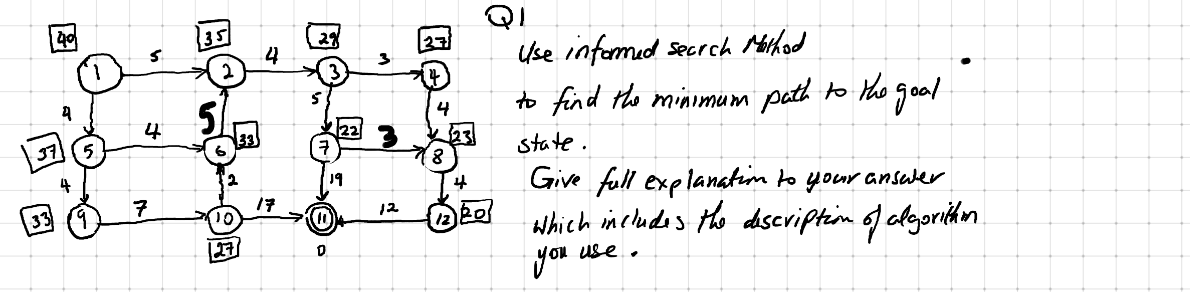 Q1
Use informed search Method
to find the minimum path to the goal
state.
Give full explanation to your answer
which includes the discription of algorithm
you use.
40 35 29 27
1 5 2 4 3 3 4
4 5 4
37 5 4 6 5 33 7 22 3 8 23
4 2 19 4
33 9 7 10 17 11 12 12 20
27 0